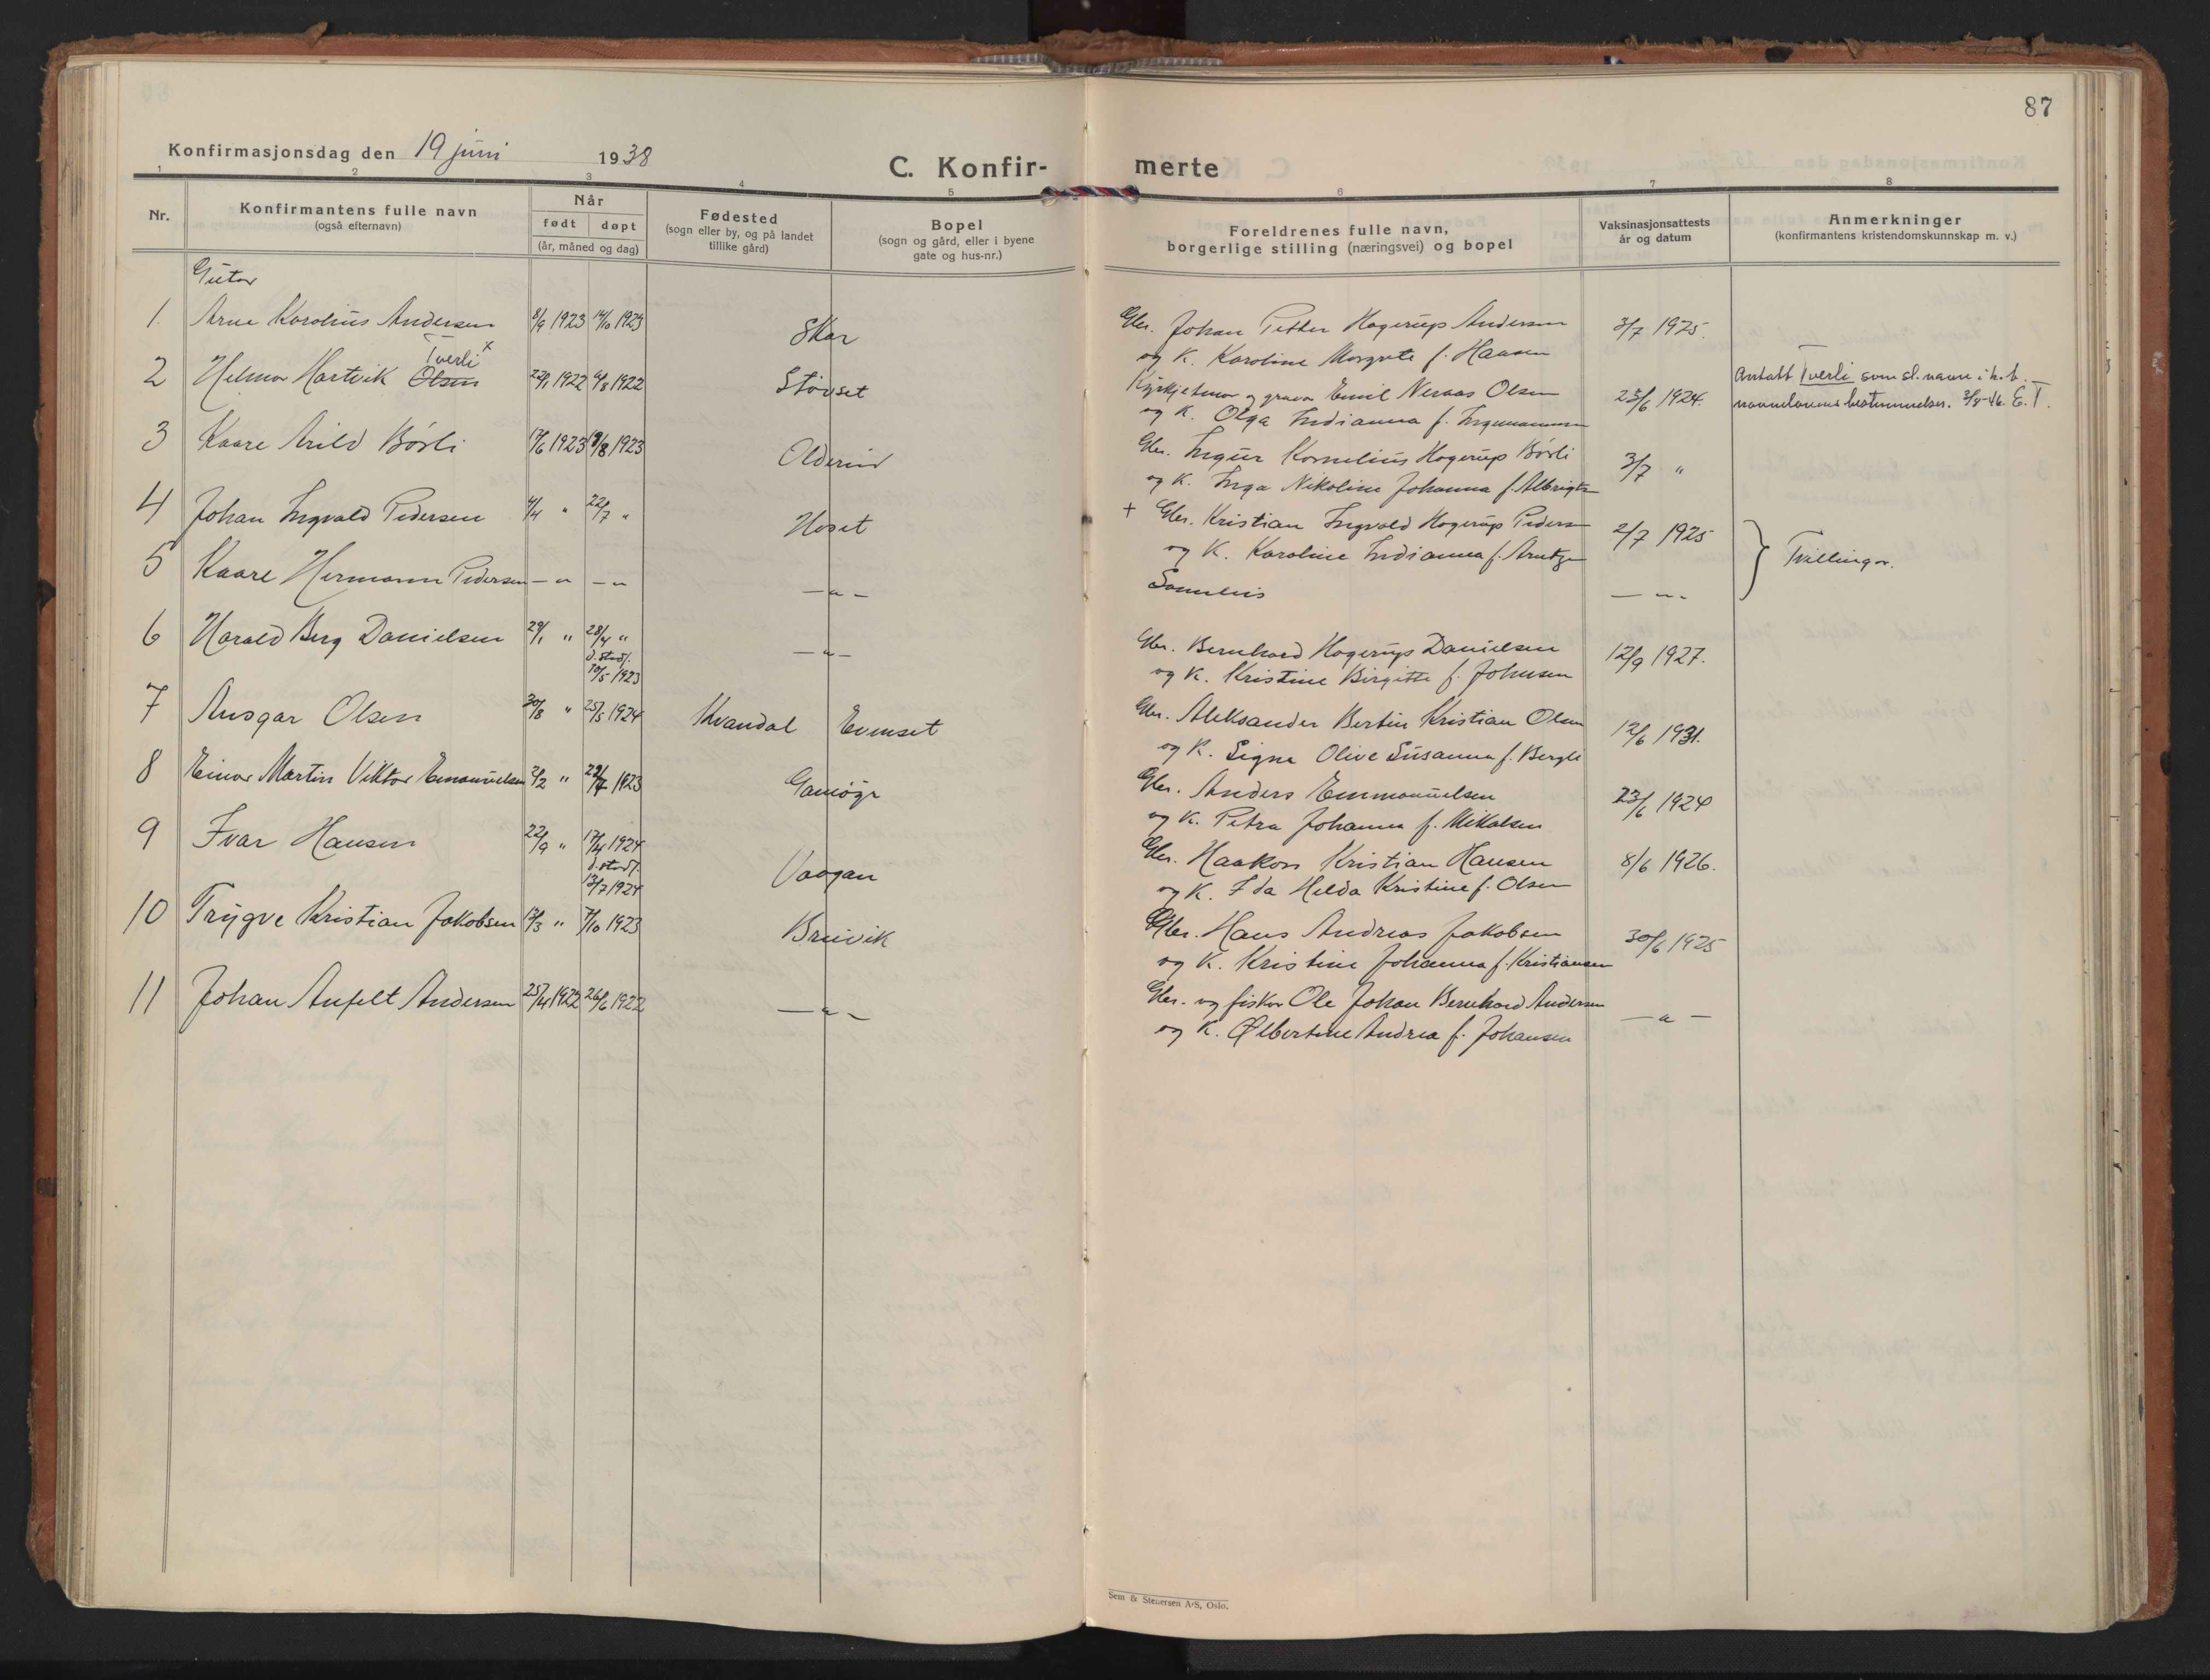 87
Konfirmasjonsdag den 19 juni 1938
C. Konfirmerte
1 2 3 4 5 6 7 8
Nr.
Konfirmantens fulle navn
(også efternavn)
Når
født døpt
(år, måned og dag)
Fødested
(sogn eller by, og på landet
tillike gård)
Bopel
(sogn og gård, eller i byene
gate og hus-nr.)
Foreldrenes fulle navn,
borgerlige stilling (næringsvei) og bopel
Vaksinasjonsattests
år og datum
Anmerkninger
(konfirmantens kristendomskunnskap m. v.)
Gutar
1. Arne Karolius Andersen 8/9 1923 14/10 1923 Skar Gbr. Johan Petter Hagerup Andersen 3/7 1925.
og K. Karoline Margrete f. Hansen
Tverli x
2 Helmar Hartvik Olsen 22/1 1922 6/8 1922 Støvset Kyrkjetenar og gravar Emil Neraas Olsen 23/6 1924. Antatt Tverli som sl. navn i h. t.
og K. Olga Indianna f. Ingemannsen navnelovens bestemmelser. 3/8-46. E. T.
3 Kaare Arild Børli 17/6 1923 19/8 1923 Oldereid Gbr. Ingur Kornelius Hagerup Børli 3/7 "
og K. Inga Nikoline Johanna f. Albrigts
4 Johan Ingvald Pedersen 4/4 " 22/7 " Hoset + Gbr. Kristian Ingvald Hagerup Peders 2/7 1925 } Tvillingar.
og K. Karoline Indianna f. Arntze
5 Kaare Hermann Pedersen — " — " — " — Samleis — " —
6 Harald Berg Danielsen 29/1 " 28/4 " — " — Gbr. Bernhard Hagerup Danielsen 12/9 1927.
d. stadf. og K. Kristine Birgitte f. Johnsen
10/5 1923
7 Ansgar Olsen 30/8 " 25/5 1924 Kvandal Evenset Gbr. Aleksander Bertin Kristian Olsen 12/6 1931.
og K. Signe Olive Susanna f. Bergli
8 Einar Martin Viktor Emanuelsen 2/2 " 22/7 1923 Gamøyr Gbr. Anders Emmanuelsen 23/6 1924
og K. Petra Johanna f. Mikalsen
9 Ivar Hansen 22/9 " 17/4 1924 Vaagan Gbr. Haakon Kristian Hansen 8/6 1926.
d. stadf. og K. Ida Helda Kristine f. Olsen
13/7 1924
10 Trygve Kristian Jakobsen 13/3 " 7/10 1923 Breivik Gbr. Hans Andreas Jakobsen 30/6 1925
og K. Kristine Johanna f. Kristiansen
11 Johan Anfelt Andersen 25/4 1922 26/6 1922 — " — Gbr. og fiskar Ole Johan Bernhard Andersen — " —
og K. Olbertine Andrea f. Johansen
Sem & Stenersen A/S, Oslo.